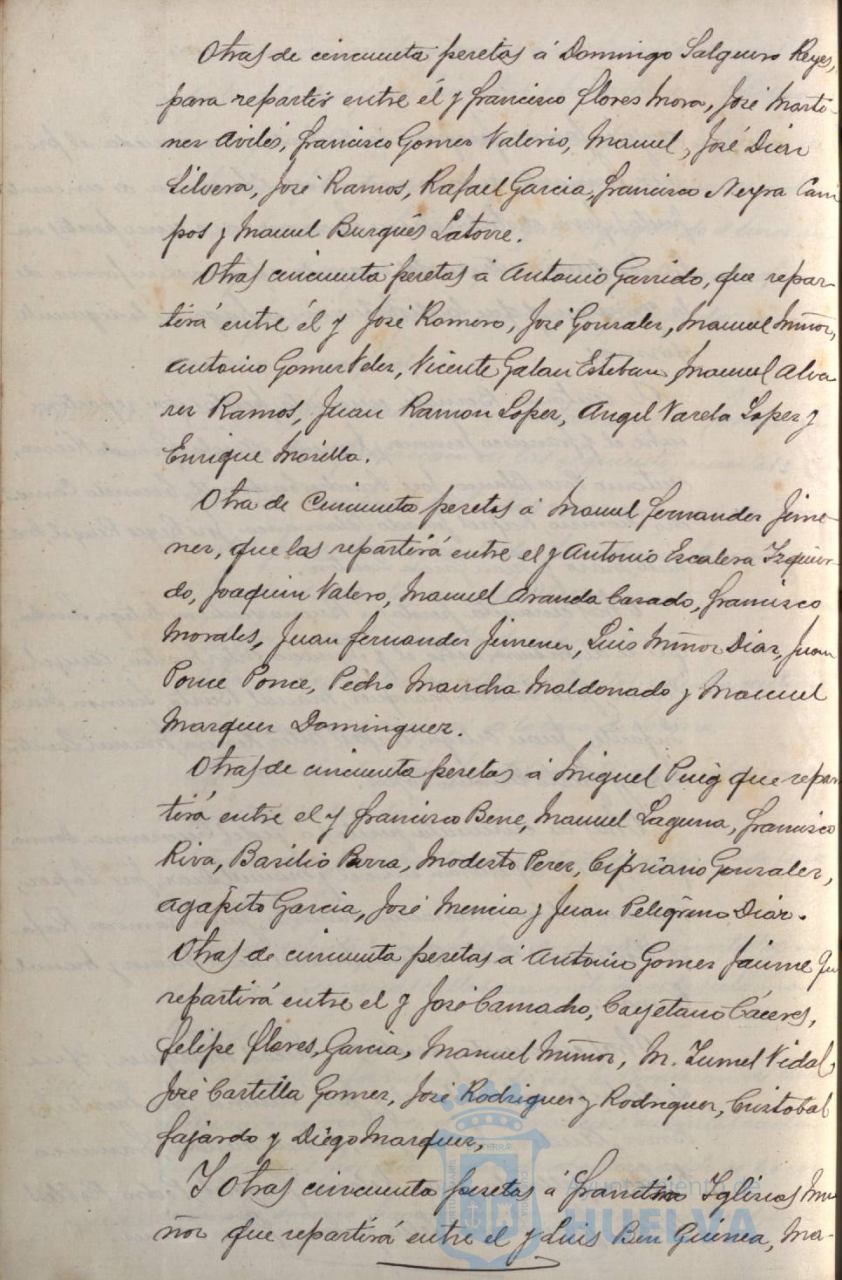 Otras de cincuenta pesetas á Domingo Salguero Reyes,
para repartir entre él y Francisco Flores Mora, José Marti-
nez Avilés, Francisco Gomez Valerio, Manuel, José Diaz
Silvera, José Ramos, Rafael Garcia, Francisco Neyra Cam
pos y Manuel Burgués Latorre.
Otras cincuenta pesetas á Antonio Garrido, que repar-
tirá entre él y José Romero, José Gonzalez, Manuel Muñoz,
Antonio Gomez Velez, Vicente Galan Esteban, Manuel Alva
rez Ramos, Juan Ramon Lopez, Angel Varela Lopez y
Enrique Morilla.
Otra de Cincuenta pesetas á Manuel Fernandez Jime-
nez, que las repartirá entre el y Antonio Escalera Izquier-
do, Joaquin Valero, Manuel Aranda Casado, Francisco
Morales, Juan Fernandez Jimenez, Luis Muñoz Diaz, Juan
Ponce Ponce, Pedro Mancha Maldonado y Manuel
Marquez Dominguez.
Otras de cincuenta pesetas á Miguel Puig que repar
tirá entre el y Francisco Bene, Manuel Laguna, Francisco
Riva, Basilio Parra, Modesto Perez, Cipriano Gonzalez,
Agapito Garcia, José Mencia y Juan Peligrino Diaz.
Otras de cincuenta pesetas á Antonio Gomez Jaime
repartirá entre el y José Camacho, Cayetano Cáceres,
Felipe Flores, Garcia, Manuel Muñoz, M. Zumel Vidal,
José Castilla Gomez, José Rodriguez y Rodriguez, Cristobal
Fajardo y Diego Marquez,
Y otras cincuenta pesetas á Francisco Iglesias Mu
ñoz que repartirá entre el y Luis Ben Guinea, Ma-
Ayuntamiento de
HUELVA